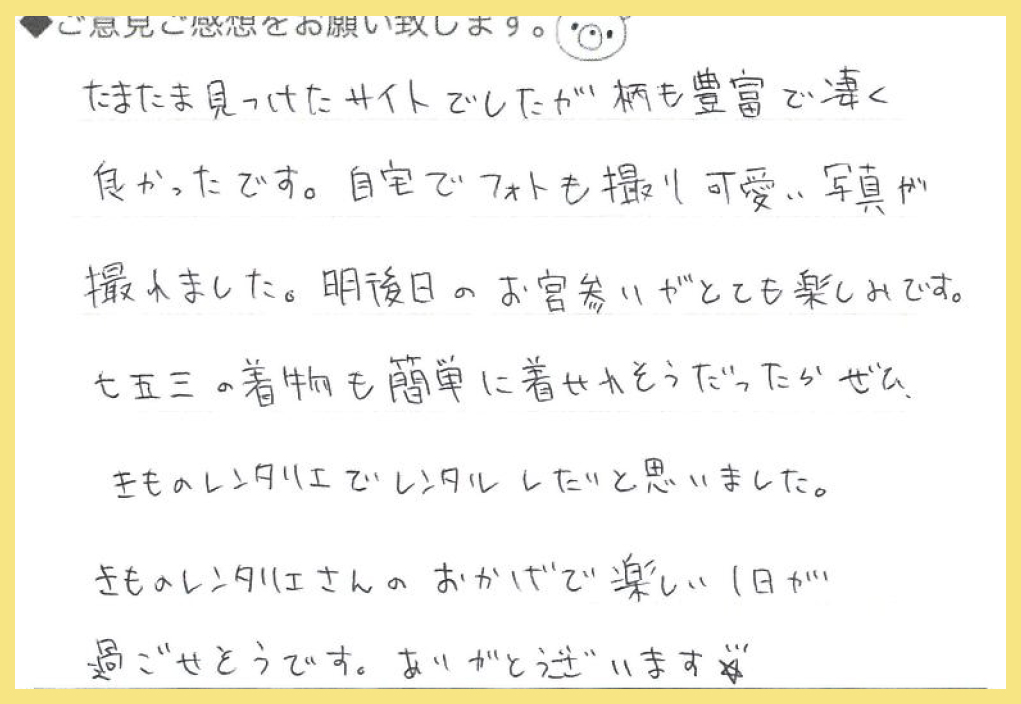 ◆ご意見ご感想をお願い致します。
たまたま見つけたサイトでしたが柄も豊富で凄く
良かったです。自宅でフォトも撮り可愛い写真が
撮れました。明後日のお宮参りがとても楽しみです。
七五三の着物も簡単に着せれそうだったらぜひ、
きものレンタリエでレンタルしたいと思いました。
きものレンタリエさんのおかげで楽しい1日が
過ごせそうです。ありがとう逹ございます